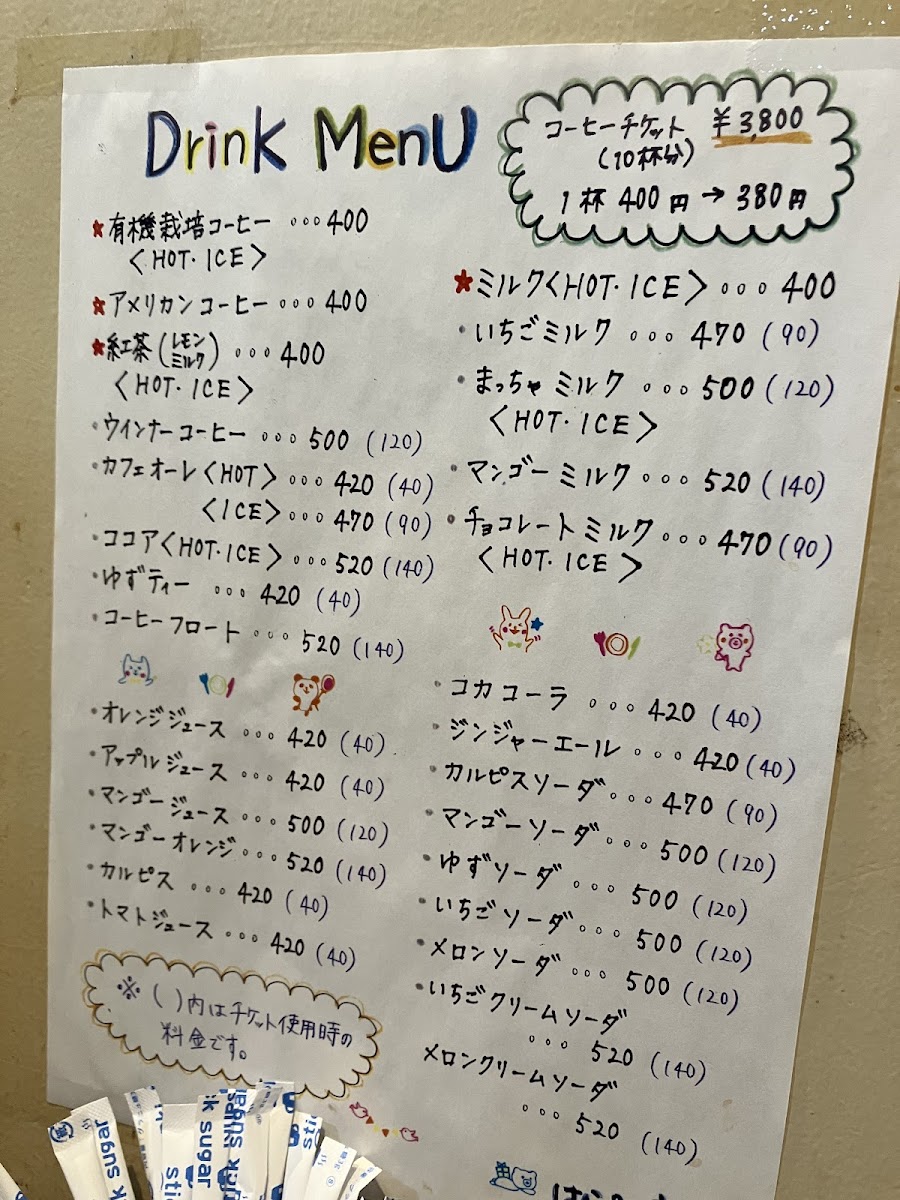 Drink Menu
コーヒーチケット ¥3,800
(10杯分)
1杯 400円→380円
★有機栽培コーヒー 。。。400
〈HOT・ICE〉
★アメリカンコーヒー 。。。400
★紅茶(レモン
ミルク) 。。。400
〈HOT・ICE〉
・ウインナーコーヒー 。。。500 (120)
・カフェオーレ〈HOT〉 。。。420 (40)
〈ICE〉。。。470 (90)
・ココア〈HOT・ICE〉 。。。520 (140)
・ゆずティー 。。。420 (40)
・コーヒーフロート 。。。520 (140)
・オレンジジュース 。。。420 (40)
・アップルジュース 。。。420 (40)
・マンゴージュース 。。。500 (120)
・マンゴーオレンジ 。。。520 (140)
・カルピス 。。。420 (40)
・トマトジュース 。。。420 (40)
※ ( )内はチケット使用時の
料金です。
★ミルク〈HOT・ICE〉 。。。400
・いちごミルク 。。。470 (90)
・まっちゃミルク 。。。500 (120)
〈HOT・ICE〉
・マンゴーミルク 。。。520 (140)
・チョコレートミルク 。。。470 (90)
〈HOT・ICE〉
・コカコーラ 。。。420 (40)
・ジンジャーエール 。。。420 (40)
・カルピスソーダ 。。。470 (90)
・マンゴーソーダ 。。。500 (120)
・ゆずソーダ 。。。500 (120)
・いちごソーダ 。。。500 (120)
・メロンソーダ 。。。500 (120)
・いちごクリームソーダ
。。。520 (140)
メロンクリームソーダ
。。。520 (140)
k sugar
sti